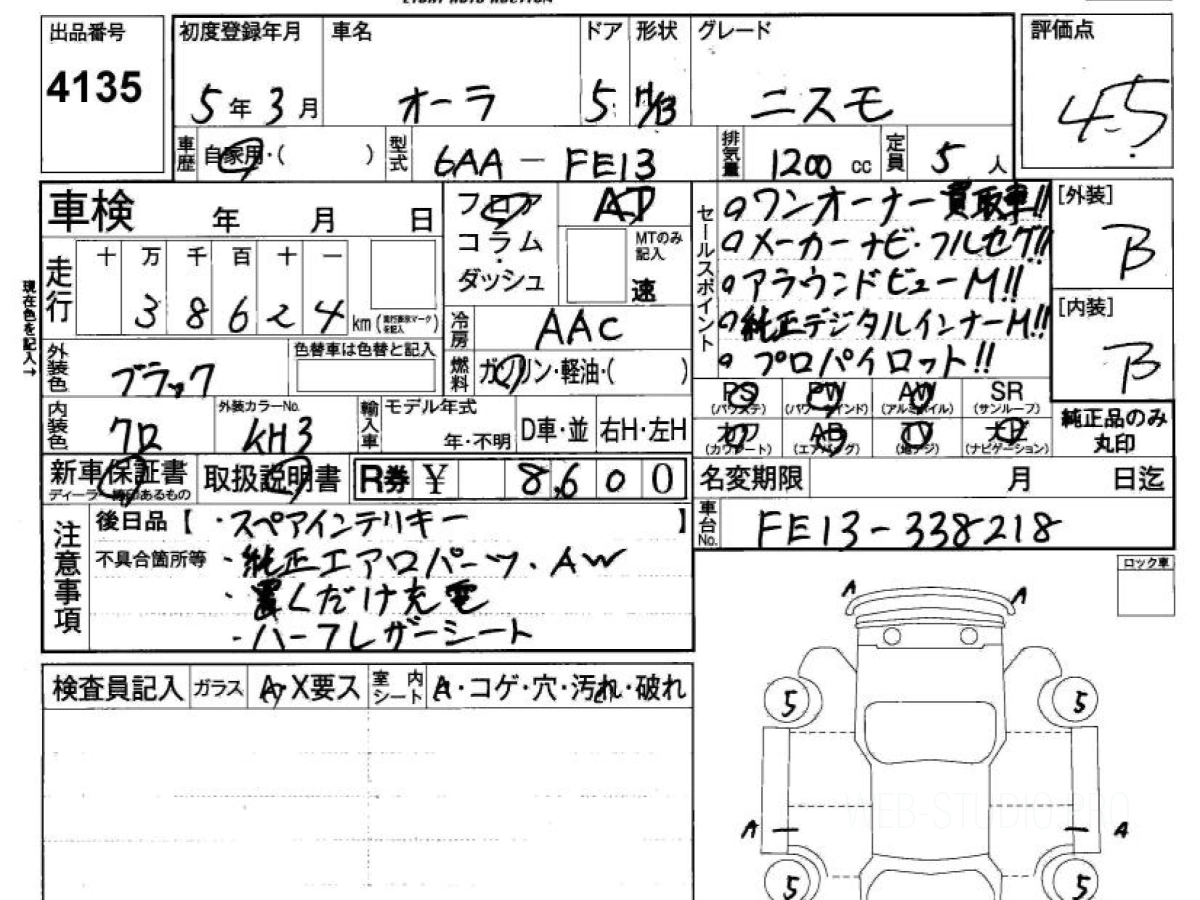 出品番号
4135
初度登録年月
5年3月
車名
オーラ
ドア
5
形状
H/B
グレード
ニスモ
評価点
4.5
車歴 自家用・( )
型式 6AA-FE13
排気量 1200 cc
定員 5人
車検 年 月 日
フロア
コラム
ダッシュ
AT
MTのみ記入
速
セールスポイント
ワンオーナー買取車!!
メーカーナビ・フルセグ!!
アラウンドビューM!!
純正デジタルインナーM!!
プロパイロット!!
[外装]
B
[内装]
B
現在色を記入→
走行
十 万 千 百 十 一
3 8 6 2 4 km
冷房 AAC
外装色 ブラック
色替車は色替と記入
燃料 ガソリン・軽油・( )
内装色 クロ
外装カラーNo.
KH3
輸入車
モデル年式
年・不明
D車・並
右H・左H
PS (パワステ)
PW (パワーウインド)
AW (アルミホイル)
SR (サンルーフ)
カワ (カワシート)
AB (エアバッグ)
TV (地デジ)
ナビ (ナビゲーション)
純正品のみ
丸印
新車保証書
取扱説明書
R券 ¥ 8,600
名変期限 月 日迄
車台No. FE13-338218
注意事項
後日品【・スペアインテリキー 】
不具合箇所等 ・純正エアロパーツ・AW
・置くだけ充電
・ハーフレザーシート
ロック車
A A
検査員記入
ガラス A・X要ス
室内シート A・コゲ・穴・汚れ・破れ
5 5
WEB-STUDIO.PRO
A A
5 5